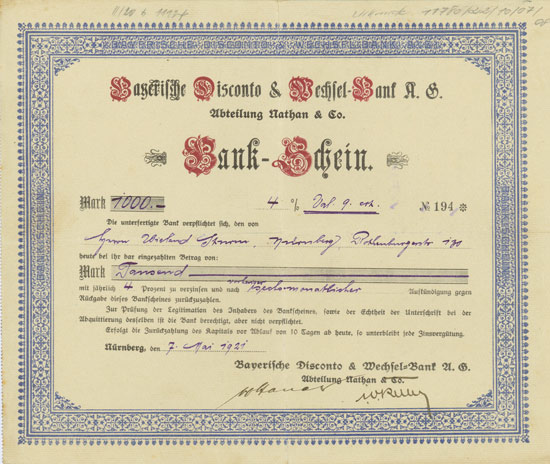 BAYERISCHE DISCONTO & WECHSEL-BANK A.G.
Bayerische Disconto & Wechsel-Bank A. G.
Abteilung Nathan & Co.
Bank-Schein.
Mark 1000.- 4 % Val. 9. № 194
Die unterfertigte Bank verpflichtet sich, den von
Herrn Wieland Nürnberg, Rothenburgerstr.
heute bei ihr bar eingezahlten Betrag von:
Mark Tausend
mit jährlich 4 Prozent zu verzinsen und nach sechsmonatlicher Aufkündigung gegen
Rückgabe dieses Bankscheines zurückzuzahlen.
Zur Prüfung der Legitimation des Inhabers des Bankscheines, sowie der Echtheit der Unterschrift bei der
Abquittierung desselben ist die Bank berechtigt, aber nicht verpflichtet.
Erfolgt die Zurückzahlung des Kapitals vor Ablauf von 10 Tagen ab heute, so unterbleibt jede Zinsvergütung.
Nürnberg, den 7. Mai 1921
Bayerische Disconto & Wechsel-Bank A. G.
Abteilung Nathan & Co.